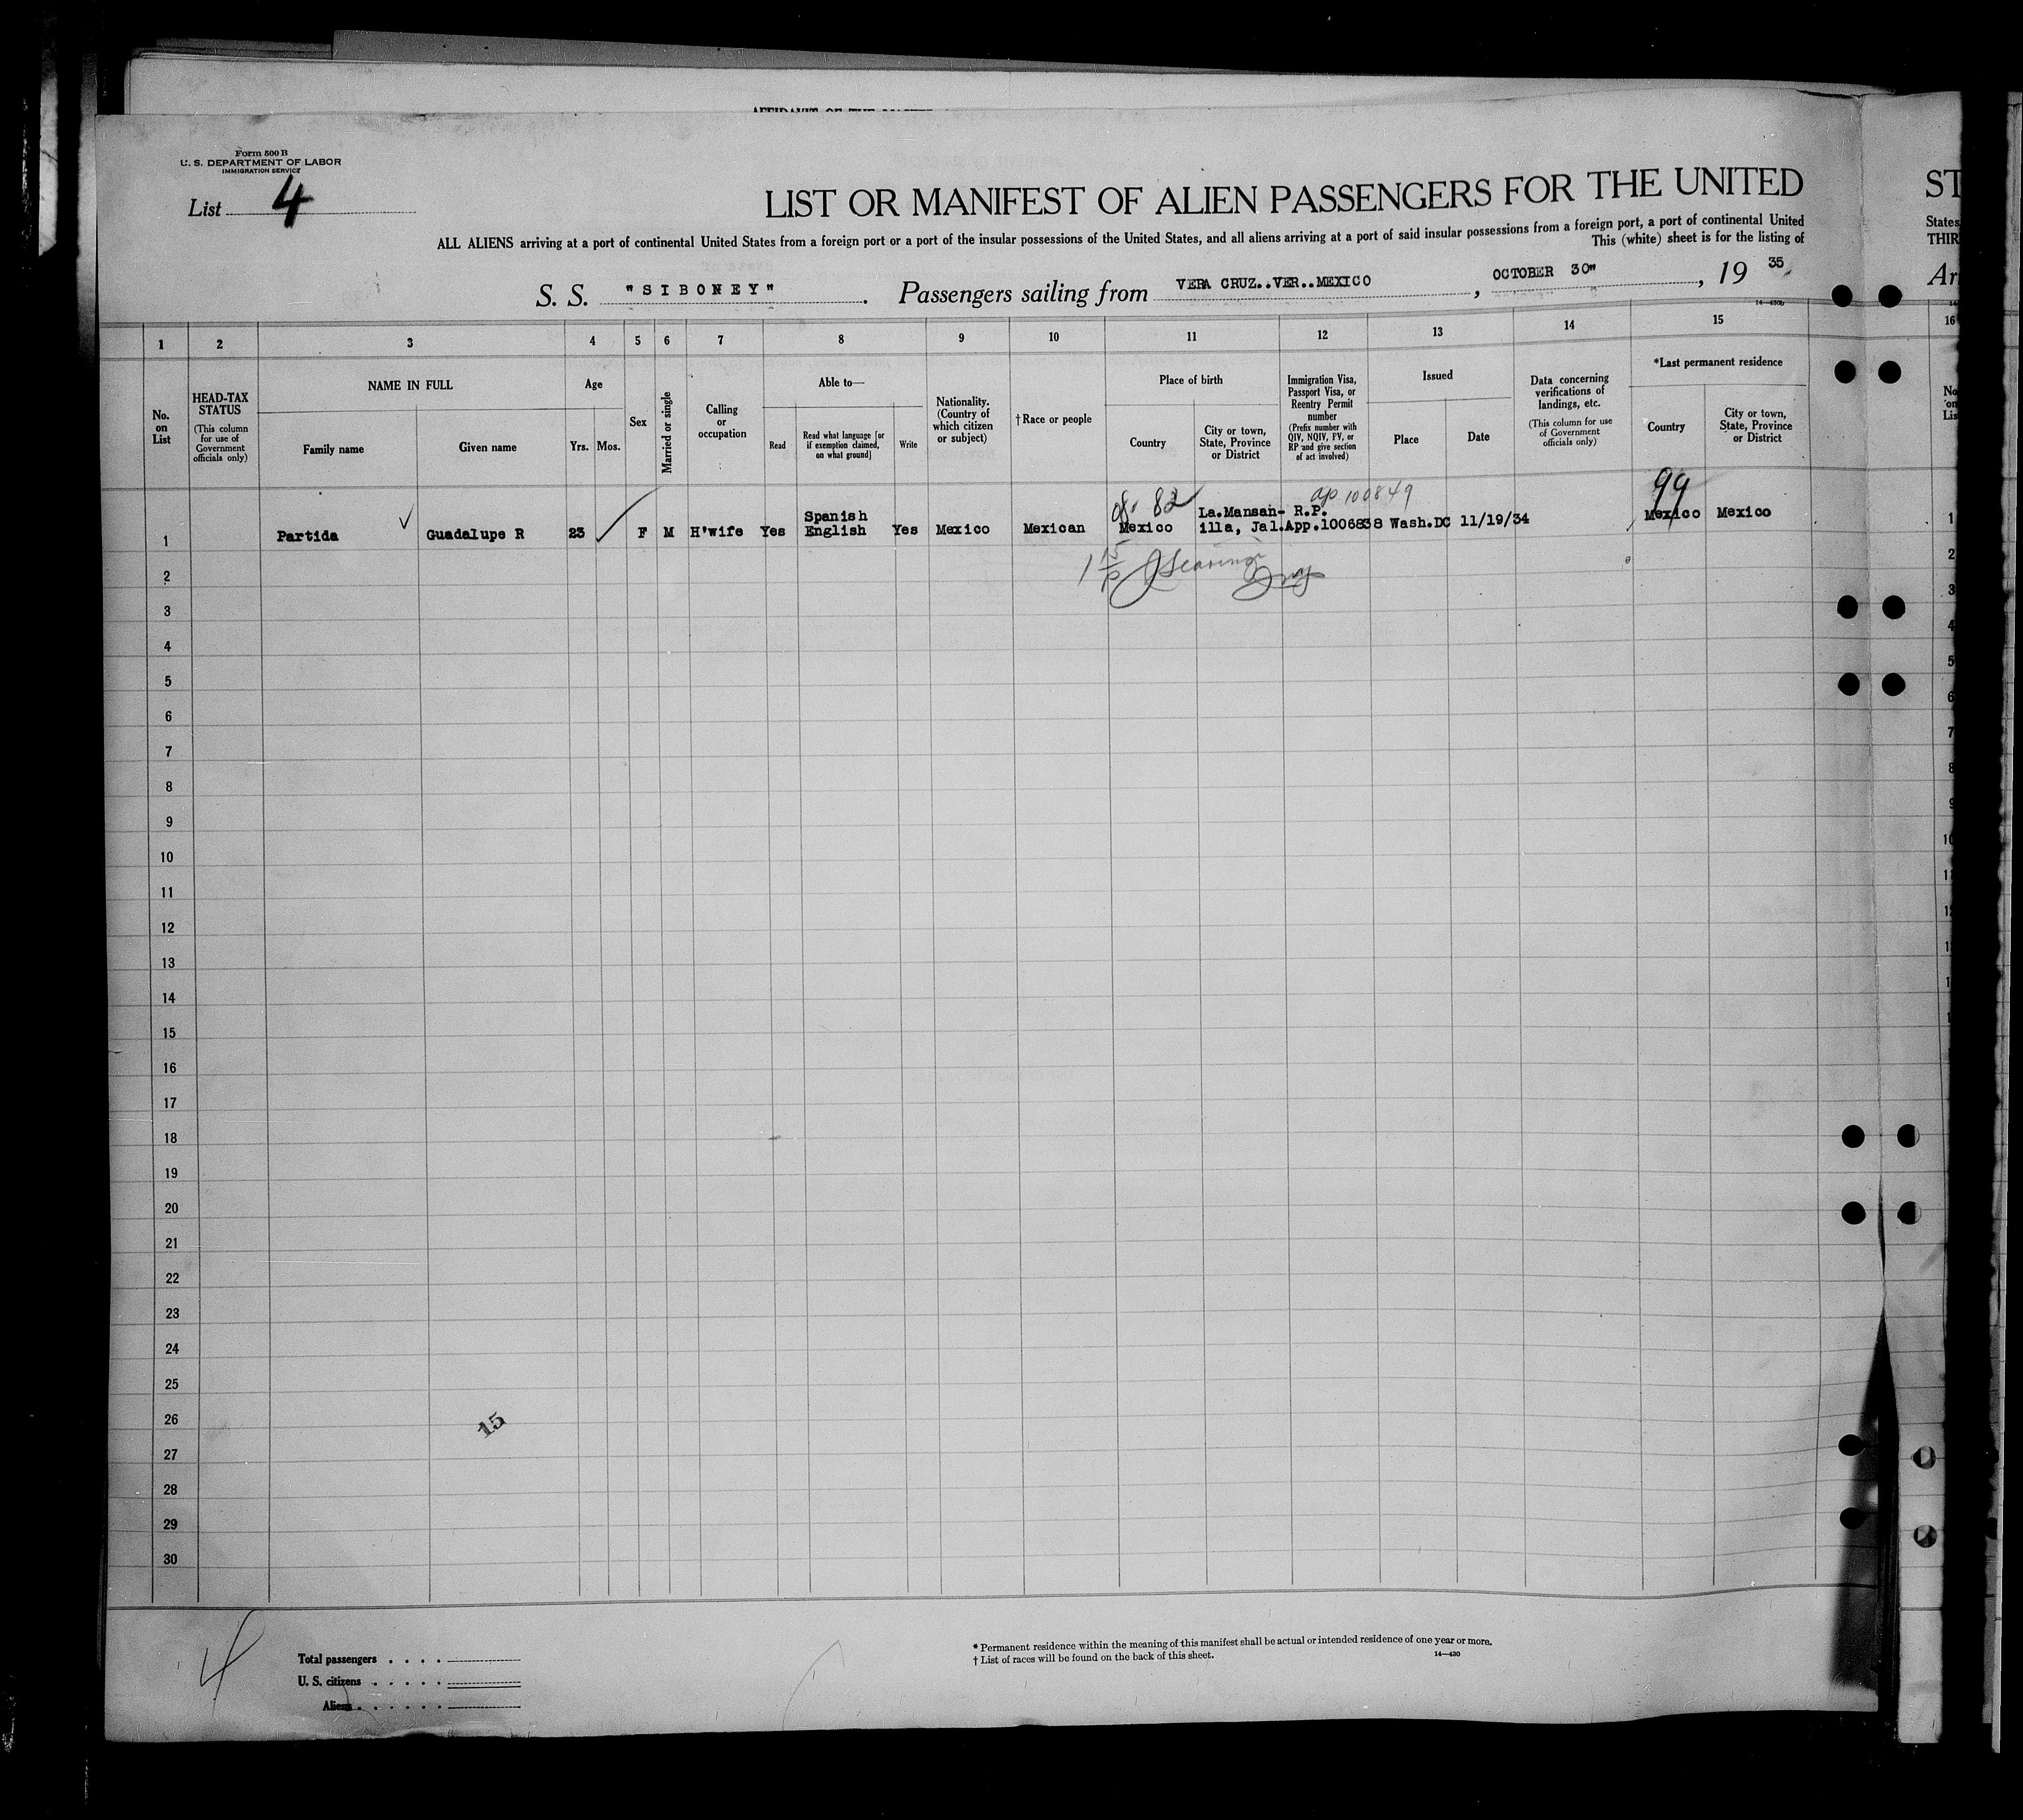 Form 500 B
U. S. DEPARTMENT OF LABOR
IMMIGRATION SERVICE
List 4
LIST OR MANIFEST OF ALIEN PASSENGERS FOR THE UNITED
ST
ALL ALIENS arriving at a port of continental United States from a foreign port or a port of the insular possessions of the United States, and all aliens arriving at a port of said insular possessions from a foreign port, a port of continental United
States
This (white) sheet is for the listing of
THIR
S. S. "SIBONEY". Passengers sailing from VERA CRUZ..VER..MEXICO, OCTOBER 30", 19 35
Ar
14-430b
1 2 3 4 5 6 7 8 9 10 11 12 13 14 15 16
No. on List
HEAD-TAX STATUS
(This column for use of Government officials only)
NAME IN FULL
Family name
Given name
Age
Yrs. Mos.
Sex
Married or single
Calling or occupation
Able to—
Read
Read what language [or if exemption claimed, on what ground]
Write
Nationality. (Country of which citizen or subject)
† Race or people
Place of birth
Country
City or town, State, Province or District
Immigration Visa, Passport Visa, or Reentry Permit number
(Prefix number with QIV, NQIV, PV, or RP and give section of act involved)
Issued
Place
Date
Data concerning verifications of landings, etc.
(This column for use of Government officials only)
*Last permanent residence
Country
City or town, State, Province or District
No on Lis
82 ap 100849 99
1 Partida Guadalupe R 23 F M H'wife Yes Spanish English Yes Mexico Mexican Mexico La.Mansan-illa, Jal. R.P. App.1006838 Wash.DC 11/19/34 Mexico Mexico 1
2
3
4
5
6
7
8
9
10
11
12
13
14
15
16
17
18
19
20
21
22
23
24
25
26
27
28
29
30
15
4
Total passengers
U. S. citizens
Aliens
* Permanent residence within the meaning of this manifest shall be actual or intended residence of one year or more.
† List of races will be found on the back of this sheet.
14—430